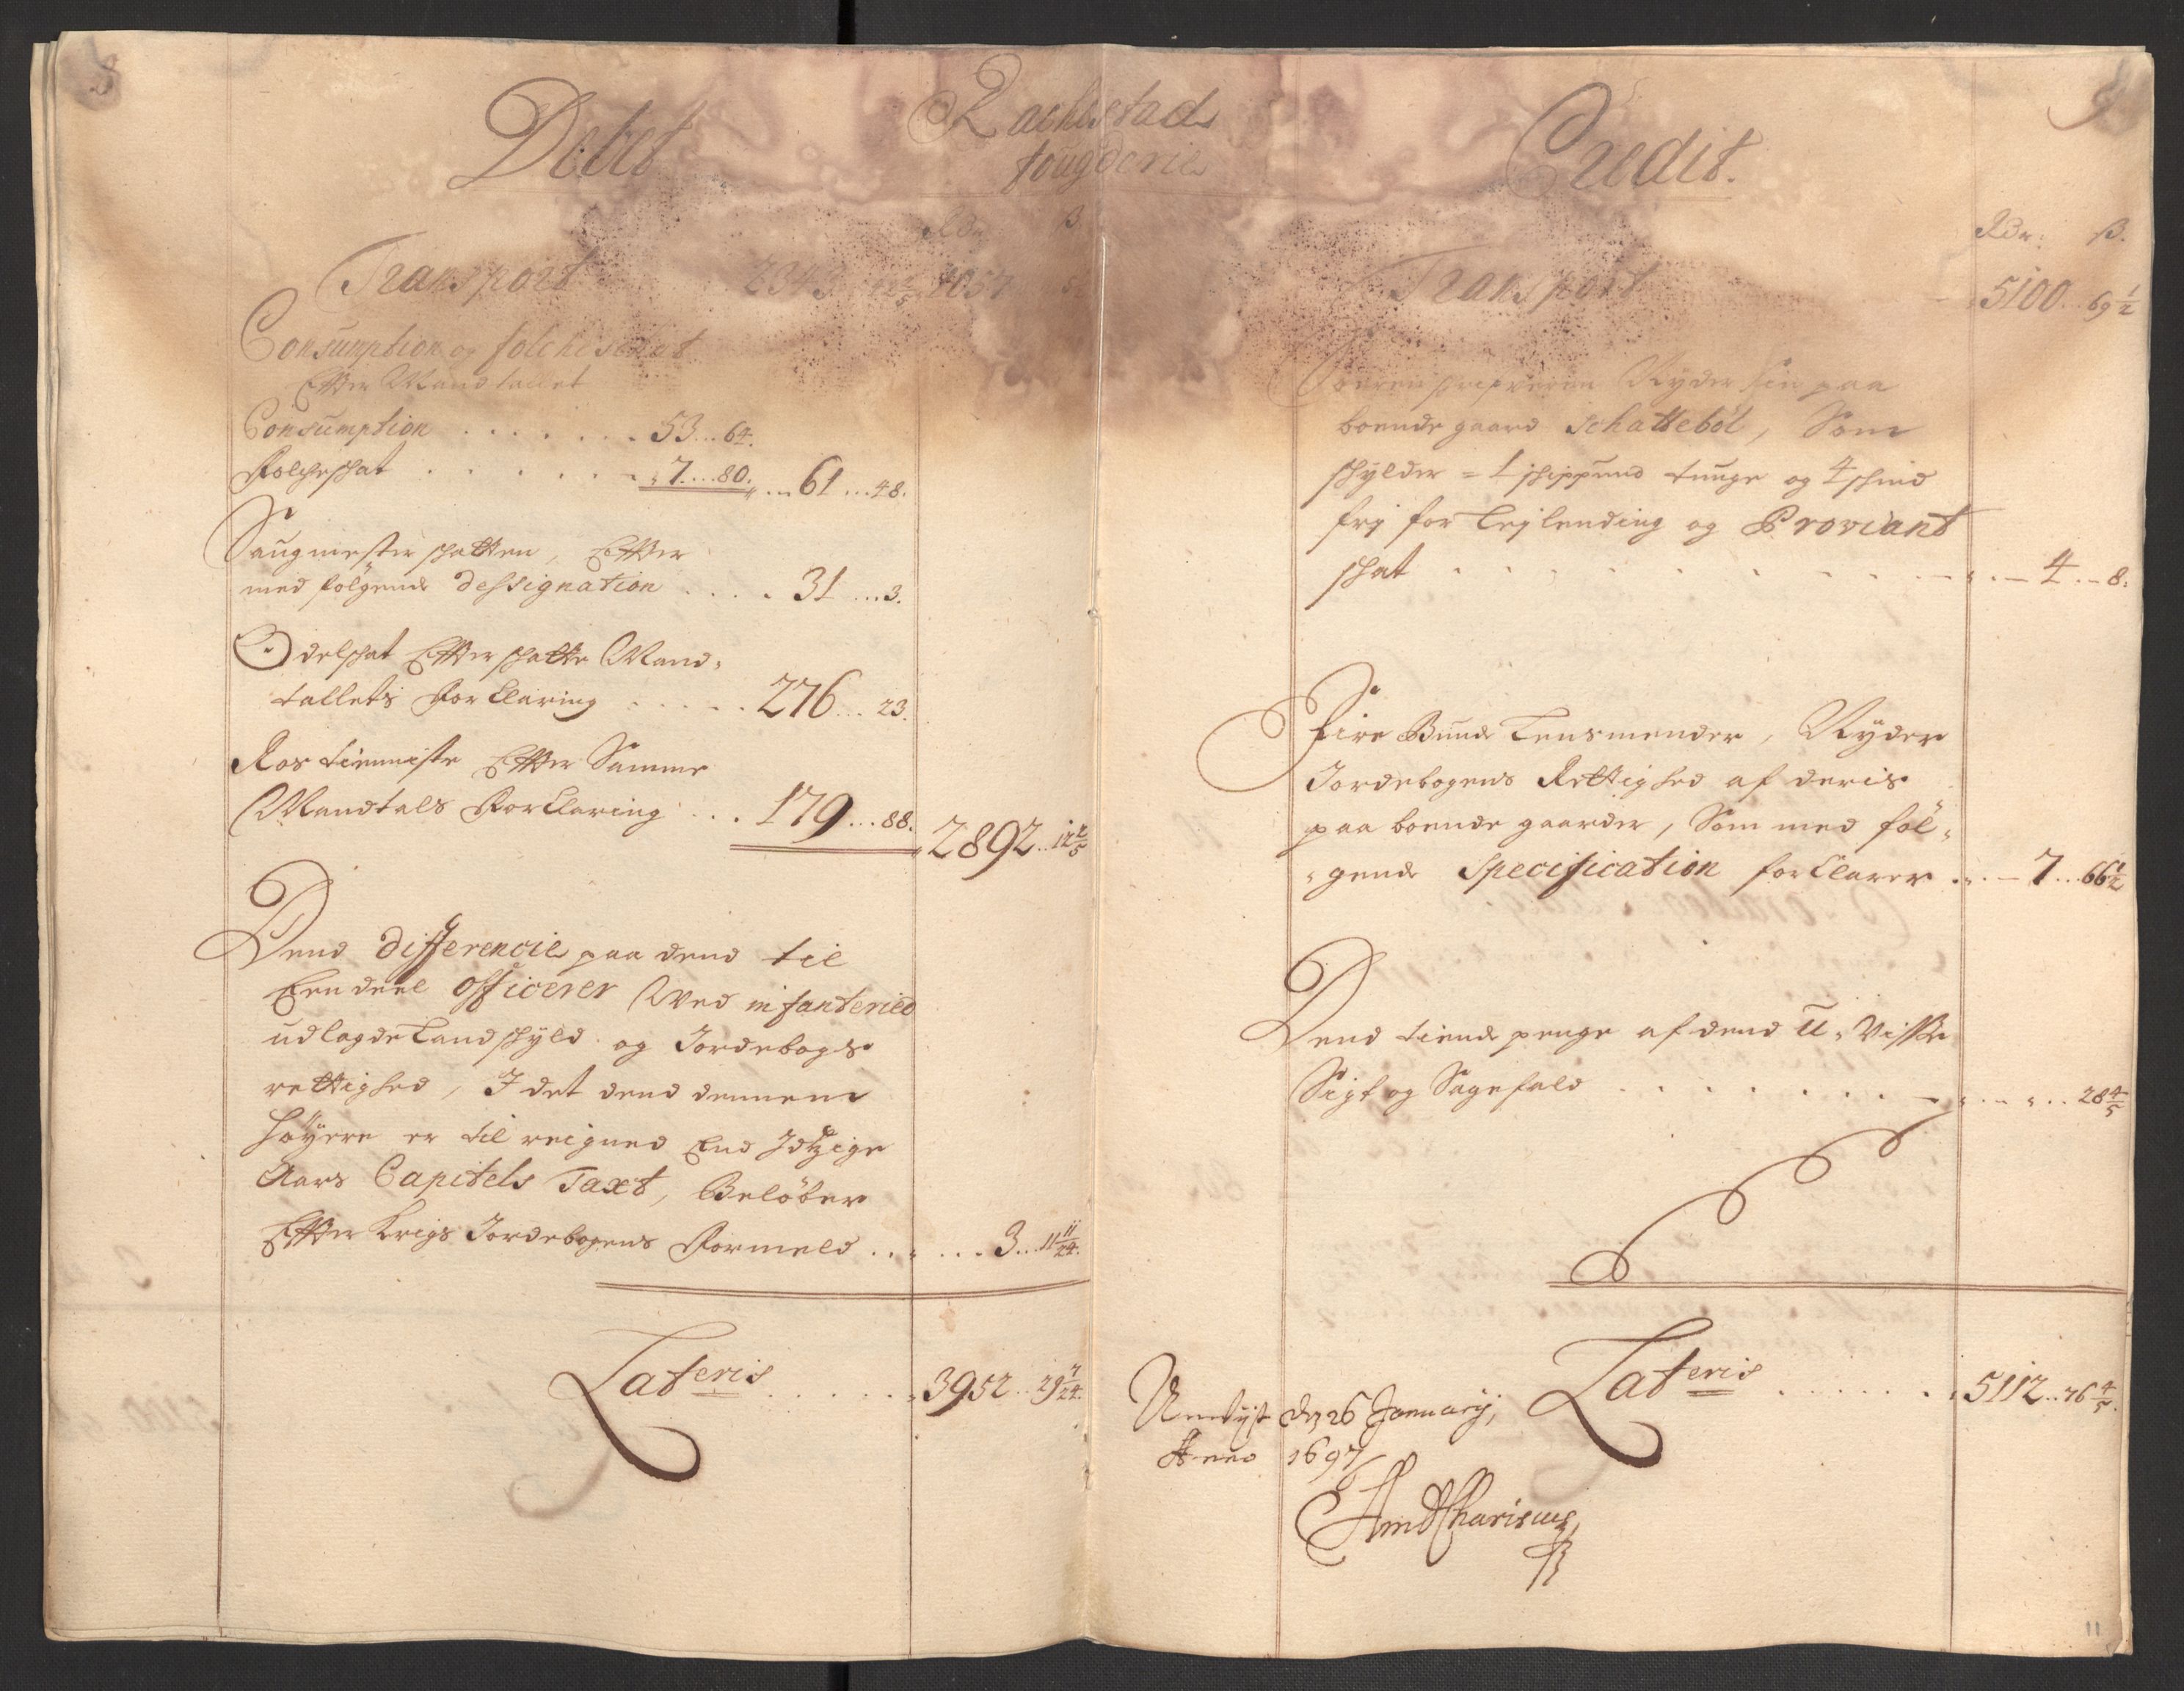 8
Debet
Rachestads
fougderie
Rdr ß.
Transport 2343 12 2/5 1057
Consumption og folcheschat
Effter Mandtallet
Consumption . . . . . . . 53 ... 64.
Folcheschat . . . . . . 7 .... 80. ... 61 ... 48.
Saugmester schatten, Effter
med fölgende dessignation . . . . 31 ... 3.
Odelschat Effter schatte Mand-
tallets Forklaring . . . . . 276 ... 23.
Ros tienniste Effter Samme
Mandtals Forklaring . . . 179 ... 88. 2892 .. 12 2/5
Dend differencie paa dend til
Een deel officerer Wed infanteried
udlagde Landschyld og Jordebogs
rettighed, I det dend dennem
höyere er tilreigned End Jdtzige
Aars Capitels Taxt, Belöber
Effter Krigs Jordebogens Formeld . . . . . 3 .. 11 11/24.
Lateris . . . . . . 3952 .. 29 7/24.
9
Credit.
Rdr: ß.
Transport 5100 .. 69 1/2
Ryder sin paa
boende gaard schatteböl, Som
schylder = 1 schippund tunge og 4 schind
frj for Leylending og Proviant
schat . . . . . . . . . . 4 .. 8.
Fire Bunde Lensmender, Nyder
Jordebogens Rettighed af deris
paa boende gaarder, Som med föl-
gende Specification forklarer . . . 7 ... 66 1/2
Dend tiende penge af dend U-Visse
Sigt og Sagefald . . . . . . . . . . . 28 4/5
Lateris . . . . . . 5112 .. 76 4/5.
dn 26 January,
Anno 1697
11